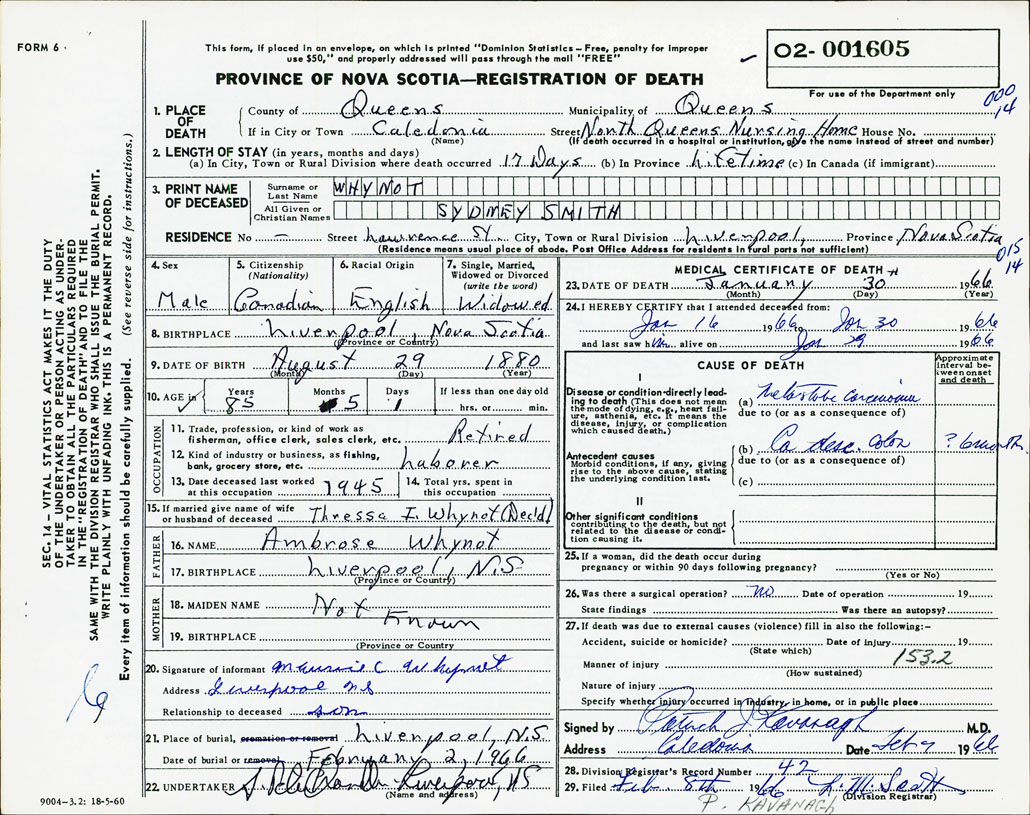 FORM 6
This form, if placed in an envelope, on which is printed "Dominion Statistics – Free, penalty for improper
use $50," and properly addressed will pass through the mail "FREE"
PROVINCE OF NOVA SCOTIA—REGISTRATION OF DEATH
02- 001605
For use of the Department only
000
14
1. PLACE OF DEATH
County of Queens Municipality of Queens
If in City or Town Caledonia Street North Queens Nursing Home House No.
(Name) (If death occurred in a hospital or institution, give the name instead of street and number)
2. LENGTH OF STAY (in years, months and days)
(a) In City, Town or Rural Division where death occurred 17 Days (b) In Province Lifetime (c) In Canada (if immigrant)
3. PRINT NAME OF DECEASED
Surname or Last Name WHYNOT
All Given or Christian Names SYDNEY SMITH
RESIDENCE No — Street Lawrence St. City, Town or Rural Division Liverpool, Province Nova Scotia
(Residence means usual place of abode. Post Office Address for residents in rural parts not sufficient)
015
14
4. Sex Male
5. Citizenship (Nationality) Canadian
6. Racial Origin English
7. Single, Married, Widowed or Divorced (write the word) Widowed
8. BIRTHPLACE Liverpool, Nova Scotia
(Province or Country)
9. DATE OF BIRTH August 29 1880
(Month) (Day) (Year)
10. AGE in Years 85 Months 5 Days 1 If less than one day old hrs. or min.
OCCUPATION
11. Trade, profession, or kind of work as
fisherman, office clerk, sales clerk, etc. Retired
12. Kind of industry or business, as fishing,
bank, grocery store, etc. Laborer
13. Date deceased last worked
at this occupation 1945
14. Total yrs. spent in
this occupation
15. If married give name of wife
or husband of deceased Thressa I. Whynot (Decd)
FATHER
16. NAME Ambrose Whynot
17. BIRTHPLACE Liverpool, N.S
(Province or Country)
MOTHER
18. MAIDEN NAME Not Known
19. BIRTHPLACE
(Province or Country)
20. Signature of informant Maurice C Whynot
Address Liverpool NS
Relationship to deceased son
21. Place of burial, cremation or removal Liverpool, N.S
Date of burial or removal February 2, 1966
22. UNDERTAKER Liverpool, NS
(Name and address)
9004-3.2: 18-5-60
MEDICAL CERTIFICATE OF DEATH
23. DATE OF DEATH January 30 1966
(Month) (Day) (Year)
24. I HEREBY CERTIFY that I attended deceased from:
Jan 16 1966 Jan 30 1966
and last saw him alive on Jan 29 1966
CAUSE OF DEATH
Approximate interval between onset and death
I
Disease or condition directly leading to death (This does not mean the mode of dying, e.g., heart failure, asthenia, etc. It means the disease, injury, or complication which caused death.)
(a) Metastatic carcinoma
due to (or as a consequence of)
Antecedent causes
Morbid conditions, if any, giving rise to the above cause, stating the underlying condition last.
(b) Ca desc. colon ? 6 months
due to (or as a consequence of)
(c)
II
Other significant conditions
contributing to the death, but not related to the disease or condition causing it.
25. If a woman, did the death occur during
pregnancy or within 90 days following pregnancy?
(Yes or No)
26. Was there a surgical operation? no Date of operation 19
State findings Was there an autopsy?
27. If death was due to external causes (violence) fill in also the following:–
Accident, suicide or homicide? Date of injury 19
(State which)
Manner of injury 153.2
(How sustained)
Nature of injury
Specify whether injury occurred in industry, in home, or in public place
Signed by Patrick J. Kavanagh M.D.
Address Caledonia Date Feb 1966
28. Division Registrar's Record Number 42
29. Filed Feb. 8th 1966 L. M. Scott
(Division Registrar)
P. KAVANAGH
SEC. 14 – VITAL STATISTICS ACT MAKES IT THE DUTY
OF THE UNDERTAKER OR PERSON ACTING AS UNDER-
TAKER TO OBTAIN ALL THE PARTICULARS REQUIRED
IN THE "REGISTRATION OF DEATH" AND TO FILE THE
SAME WITH THE DIVISION REGISTRAR WHO SHALL ISSUE THE BURIAL PERMIT.
WRITE PLAINLY WITH UNFADING INK. THIS IS A PERMANENT RECORD.
Every item of information should be carefully supplied. (See reverse side for instructions.)